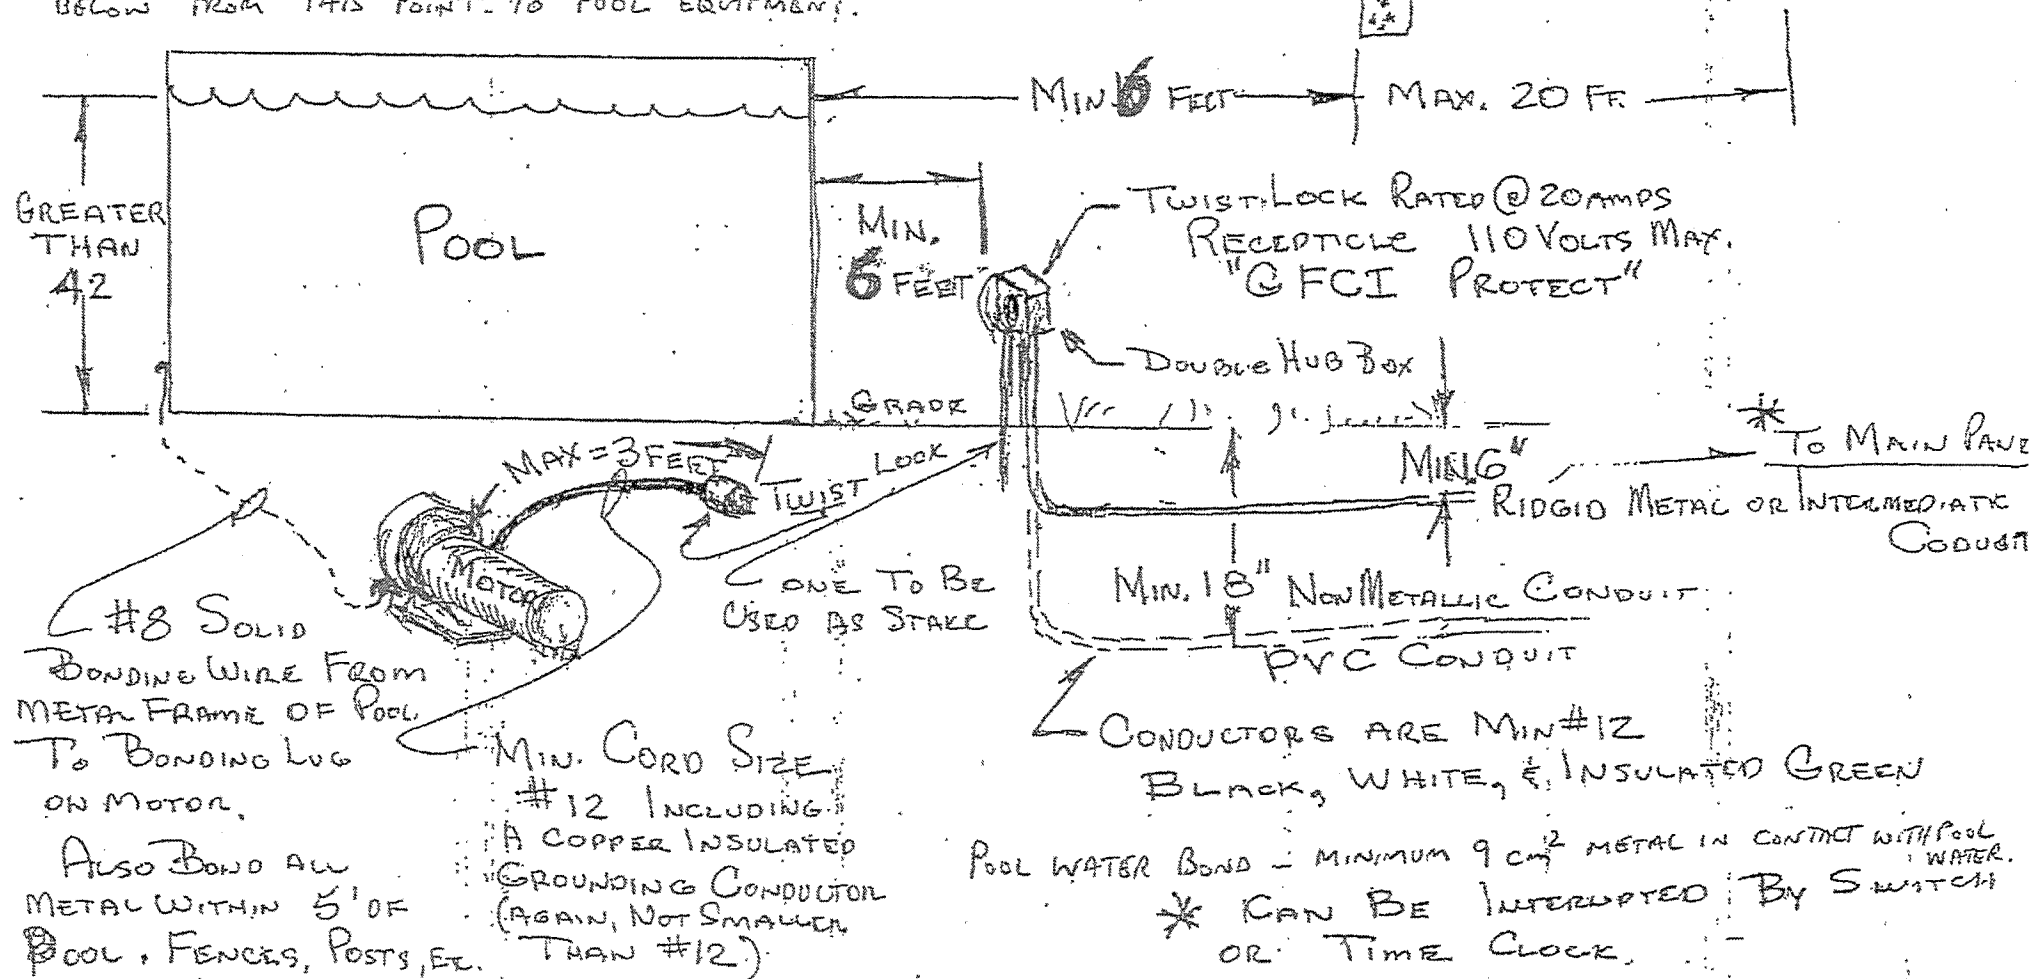 BELOW FROM THIS POINT TO POOL EQUIPMENT.
MIN. 6 FEET
MAX. 20 FT.
GREATER
THAN
42
POOL
MIN.
6 FEET
TWIST LOCK RATED @ 20 AMPS
RECEPTICLE 110 VOLTS MAX.
"GFCI PROTECT"
DOUBLE HUB BOX
GRADE
MAX = 3 FEET
TWIST LOCK
MIN. 6"
* TO MAIN PANE
RIDGID METAL OR INTERMEDIATE
MOTOR
ONE TO BE
USED AS STAKE
MIN. 18" NONMETALLIC CONDUIT
PVC CONDUIT
#8 SOLID
BONDING WIRE FROM
METAL FRAME OF POOL
TO BONDING LUG
ON MOTOR.
ALSO BOND ALL
METAL WITHIN 5' OF
POOL. FENCES, POSTS, ETC.
MIN. CORD SIZE
#12 INCLUDING
A COPPER INSULATED
GROUNDING CONDUCTOR
(AGAIN, NOT SMALLER
THAN #12)
CONDUCTORS ARE MIN #12
BLACK, WHITE, & INSULATED GREEN
POOL WATER BOND - MINIMUM 9 cm² METAL IN CONTACT WITH POOL
WATER.
* CAN BE INTERRUPTED BY SWITCH
OR TIME CLOCK.